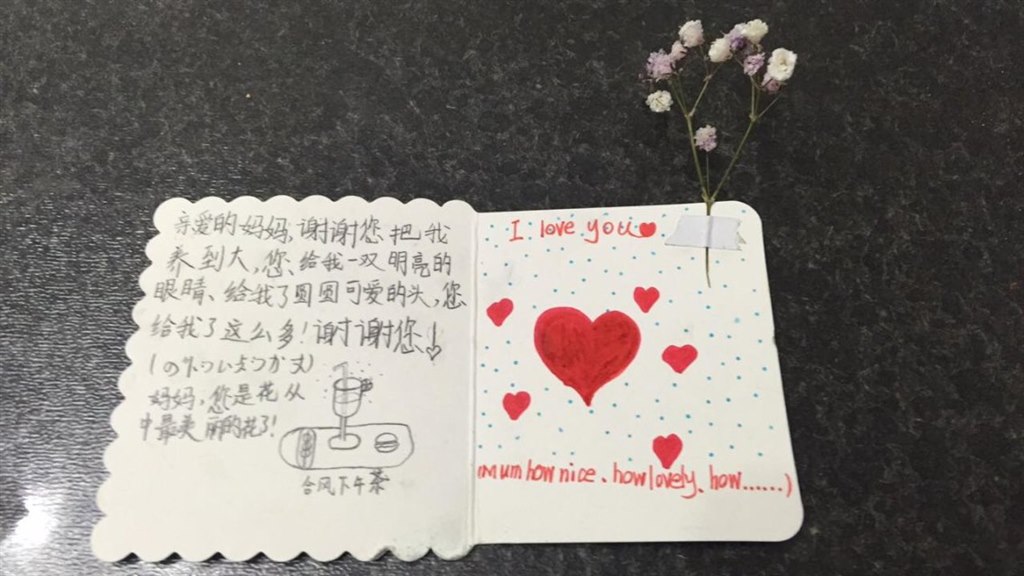 亲爱的妈妈,谢谢您把我
养到大,您、给我一双明亮的
眼睛、给我了圆圆可爱的头,您
给我了这么多!谢谢您!
妈妈,您是花从
中最美丽的花了!
台风下午茶
I love you
(Mum how nice. how lovely. how......)